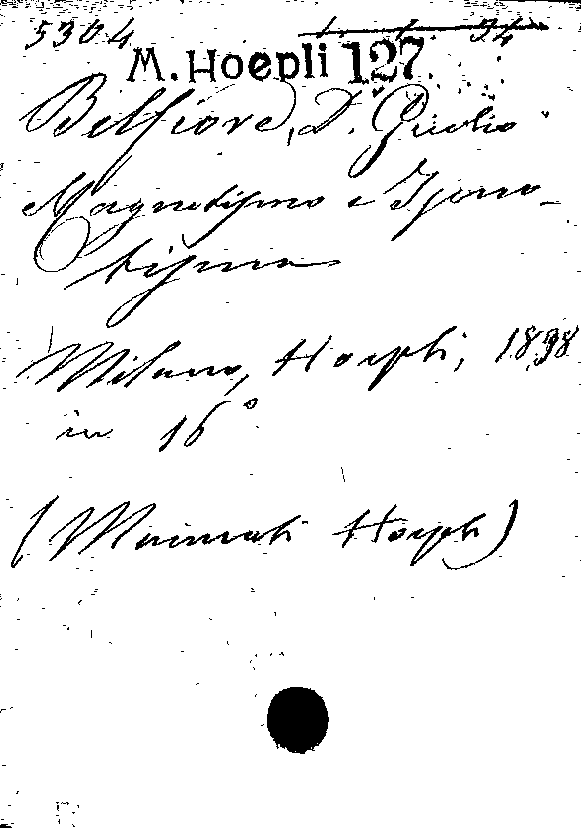 5304
M. Hoepli 127
Belfiore, D. Giulio
Magnetismo e Ipno-
tismo
Milano, Hoepli, 1898
in 16°
(Manuali Hoepli)